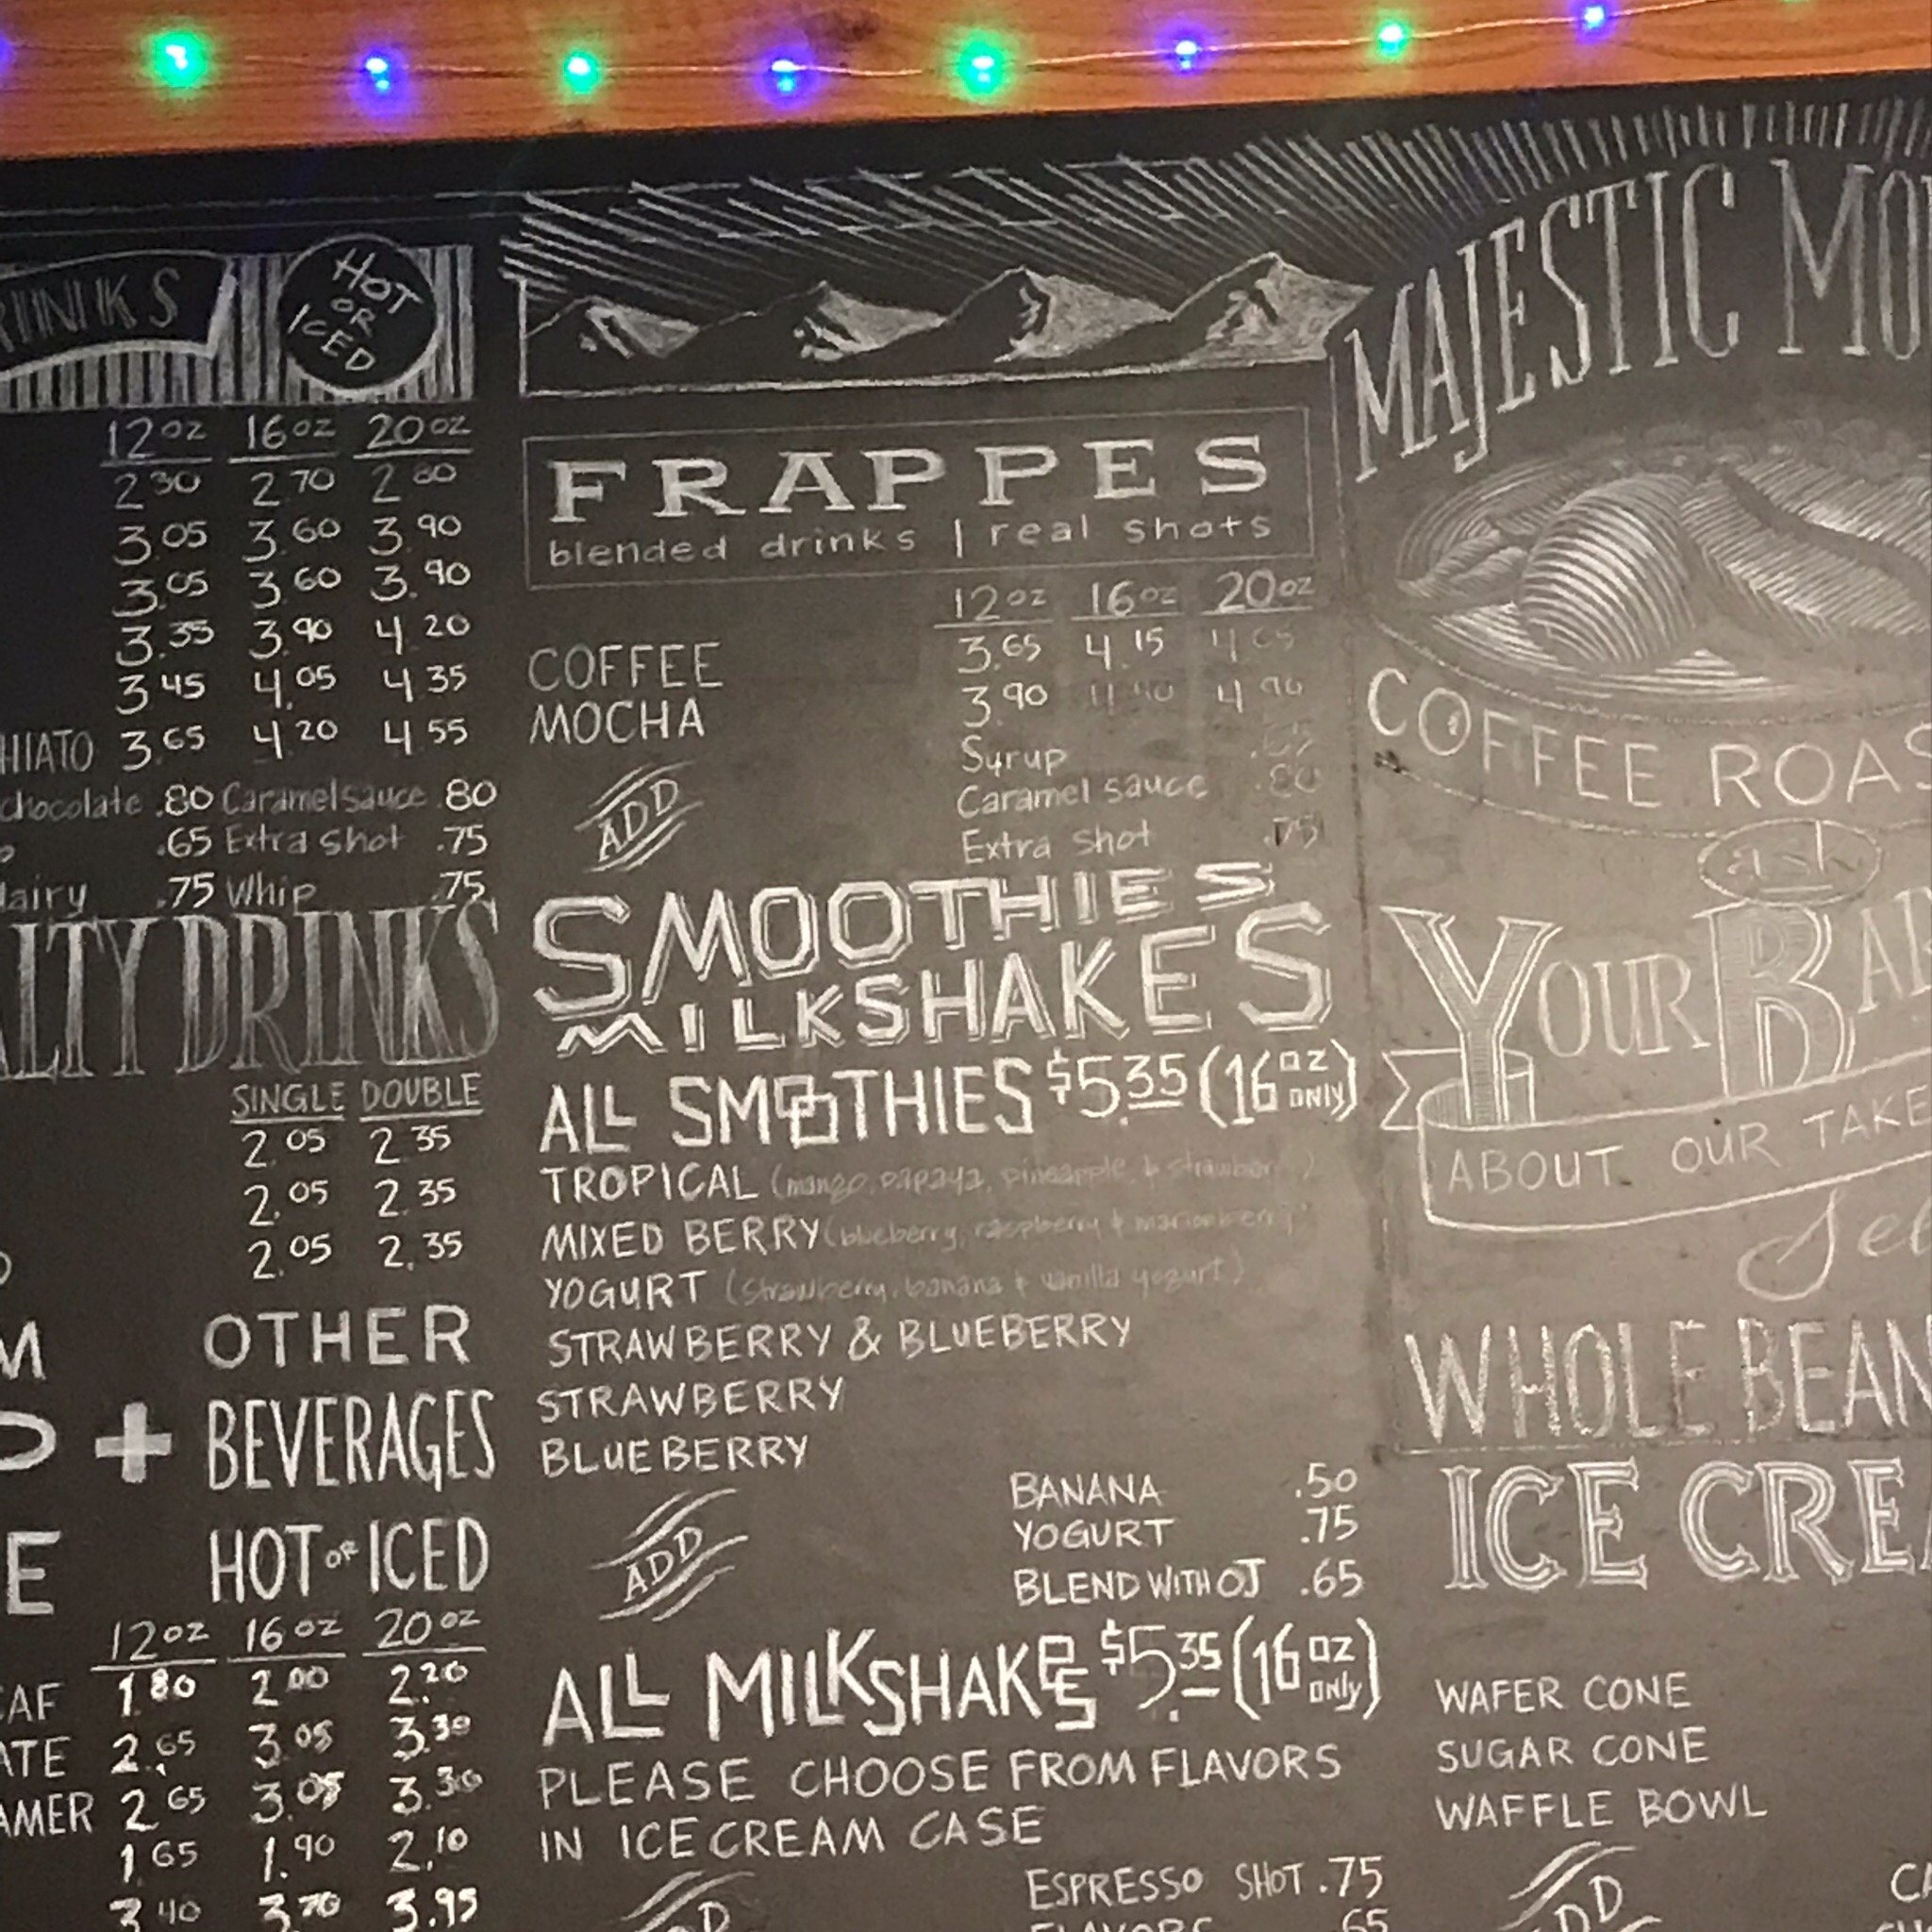 RINKS
HOT
OR
ICED
12oz 16oz 20oz
2.30 2.70 2.80
3.05 3.60 3.90
3.05 3.60 3.90
3.35 3.90 4.20
3.45 4.05 4.35
HIATO 3.65 4.20 4.55
chocolate .80 Caramel sauce .80
.65 Extra shot .75
dairy .75 Whip .75
ALTY DRINKS
SINGLE DOUBLE
2.05 2.35
2.05 2.35
2.05 2.35
M OTHER
P + BEVERAGES
E HOT OR ICED
12oz 16oz 20oz
CAF 1.80 2.00 2.20
ATE 2.65 3.05 3.30
AMER 2.65 3.05 3.30
1.65 1.90 2.10
3.40 3.70 3.95
FRAPPES
blended drinks | real shots
12oz 16oz 20oz
COFFEE 3.65 4.15 4.65
MOCHA 3.90 4.40 4.90
ADD
Syrup .65
Caramel sauce .80
Extra shot .75
SMOOTHIES
MILKSHAKES
ALL SMOOTHIES $5.35 (16 oz ONLY)
TROPICAL (mango, papaya, pineapple, & strawberry)
MIXED BERRY (blueberry, raspberry & marionberry)
YOGURT (strawberry, banana & vanilla yogurt)
STRAWBERRY & BLUEBERRY
STRAWBERRY
BLUEBERRY
ADD
BANANA .50
YOGURT .75
BLEND WITH OJ .65
ALL MILKSHAKES $5.35 (16 oz ONLY)
PLEASE CHOOSE FROM FLAVORS
IN ICE CREAM CASE
ESPRESSO SHOT .75
FLAVORS .65
MAJESTIC MO
COFFEE ROAS
ask
YOUR BA
ABOUT OUR TAKE
WHOLE BEAN
ICE CREA
WAFER CONE
SUGAR CONE
WAFFLE BOWL
ADD
CA